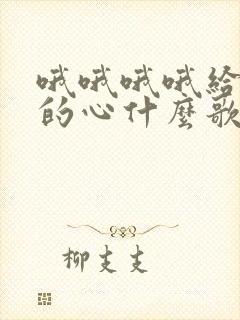 哦哦哦哦给
的心什麽歌
柳支支